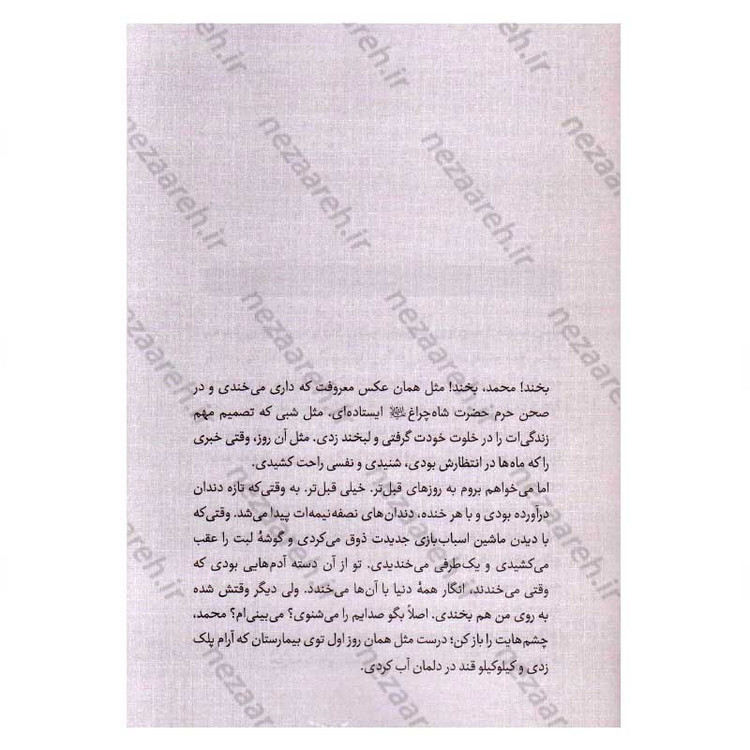 بخند! محمد، بخند! مثل همان عکس معروفت که داری می‌خندی و در
صحن حرم حضرت شاه‌چراغ ایستاده‌ای. مثل شبی که تصمیم مهم
زندگی‌ات را در خلوت خودت گرفتی و لبخند زدی. مثل آن روز، وقتی خبری
را که ماه‌ها در انتظارش بودی، شنیدی و نفسی راحت کشیدی.
اما می‌خواهم بروم به روزهای قبل‌تر. خیلی قبل‌تر. به وقتی‌که تازه دندان
درآورده بودی و با هر خنده، دندان‌های نصفه‌نیمه‌ات پیدا می‌شد. وقتی‌که
با دیدن ماشین اسباب‌بازی جدیدت ذوق می‌کردی و گوشهٔ لبت را عقب
می‌کشیدی و یک‌طرفی می‌خندیدی. تو از آن دسته آدم‌هایی بودی که
وقتی می‌خندند، انگار همهٔ دنیا با آن‌ها می‌خندد. ولی دیگر وقتش شده
به روی من هم بخندی. اصلاً بگو صدایم را می‌شنوی؟ می‌بینی‌ام؟ محمد،
چشم‌هایت را باز کن؛ درست مثل همان روز اول توی بیمارستان که آرام پلک
زدی و کیلوکیلو قند در دلمان آب کردی.
nezaareh.ir
nezaareh.ir
nezaareh.ir
nezaareh.ir
nezaareh.ir
nezaareh.ir
nezaareh.ir
nezaareh.ir
nezaareh.ir
nezaareh.ir
nezaareh.ir
nezaareh.ir